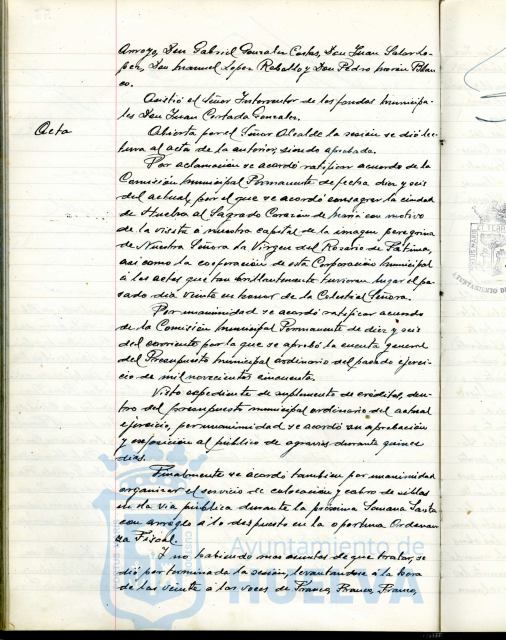 Arroyo, Don Gabriel Gonzalez Cortes, Don Juan Salas Lo-
pez, Don Manuel Lopez Rebollo y Don Pedro Morón Blan-
co.
Asistió el Señor Interventor de los fondos Municipa-
les Don Juan Cortada Gonzalez.
Acta
Abierta por el Señor Alcalde la sesión se dió lec-
tura al acta de la anterior, siendo aprobada.
Por aclamación se acordó ratificar acuerdo de la
Comisión Municipal Permanente de fecha diez y seis
del actual, por el que se acordó consagrar la ciudad
de Huelva al Sagrado Corazón de María con motivo
de la visita a nuestra capital de la imagen peregrina
de Nuestra Señora la Virgen del Rosario de Fátima,
asi como la cooperación de esta Corporación Municipal
á los actos que tan brillantemente tuvieron lugar el pa-
sado dia veinte en honor de la Celestial Señora.
Por unanimidad se acordó ratificar acuerdo
de la Comisión Municipal Permanente de diez y seis
del corriente por la que se aprobó la cuenta general
del Presupuesto Municipal ordinario del pasado ejerci-
cio de mil novecientos cincuenta.
Visto expediente de suplemento de créditos, den-
tro del presupuesto municipal ordinario del actual
ejercicio, por unanimidad se acordó su aprobación
y exposición al público de agravios durante quince
dias.
Finalmente se acordó tambien por unanimidad
organizar el servicio de colocación y cobro de sillas
en la via pública durante la próxima Semana Santa
con arreglo á lo dispuesto en la oportuna Ordenan-
za Fiscal.
Y no habiendo mas asuntos de que tratar, se
dió por terminada la sesión, levantandose á la hora
de las veinte a las voces de Franco, Franco, Franco,
Ayuntamiento de
HUELVA